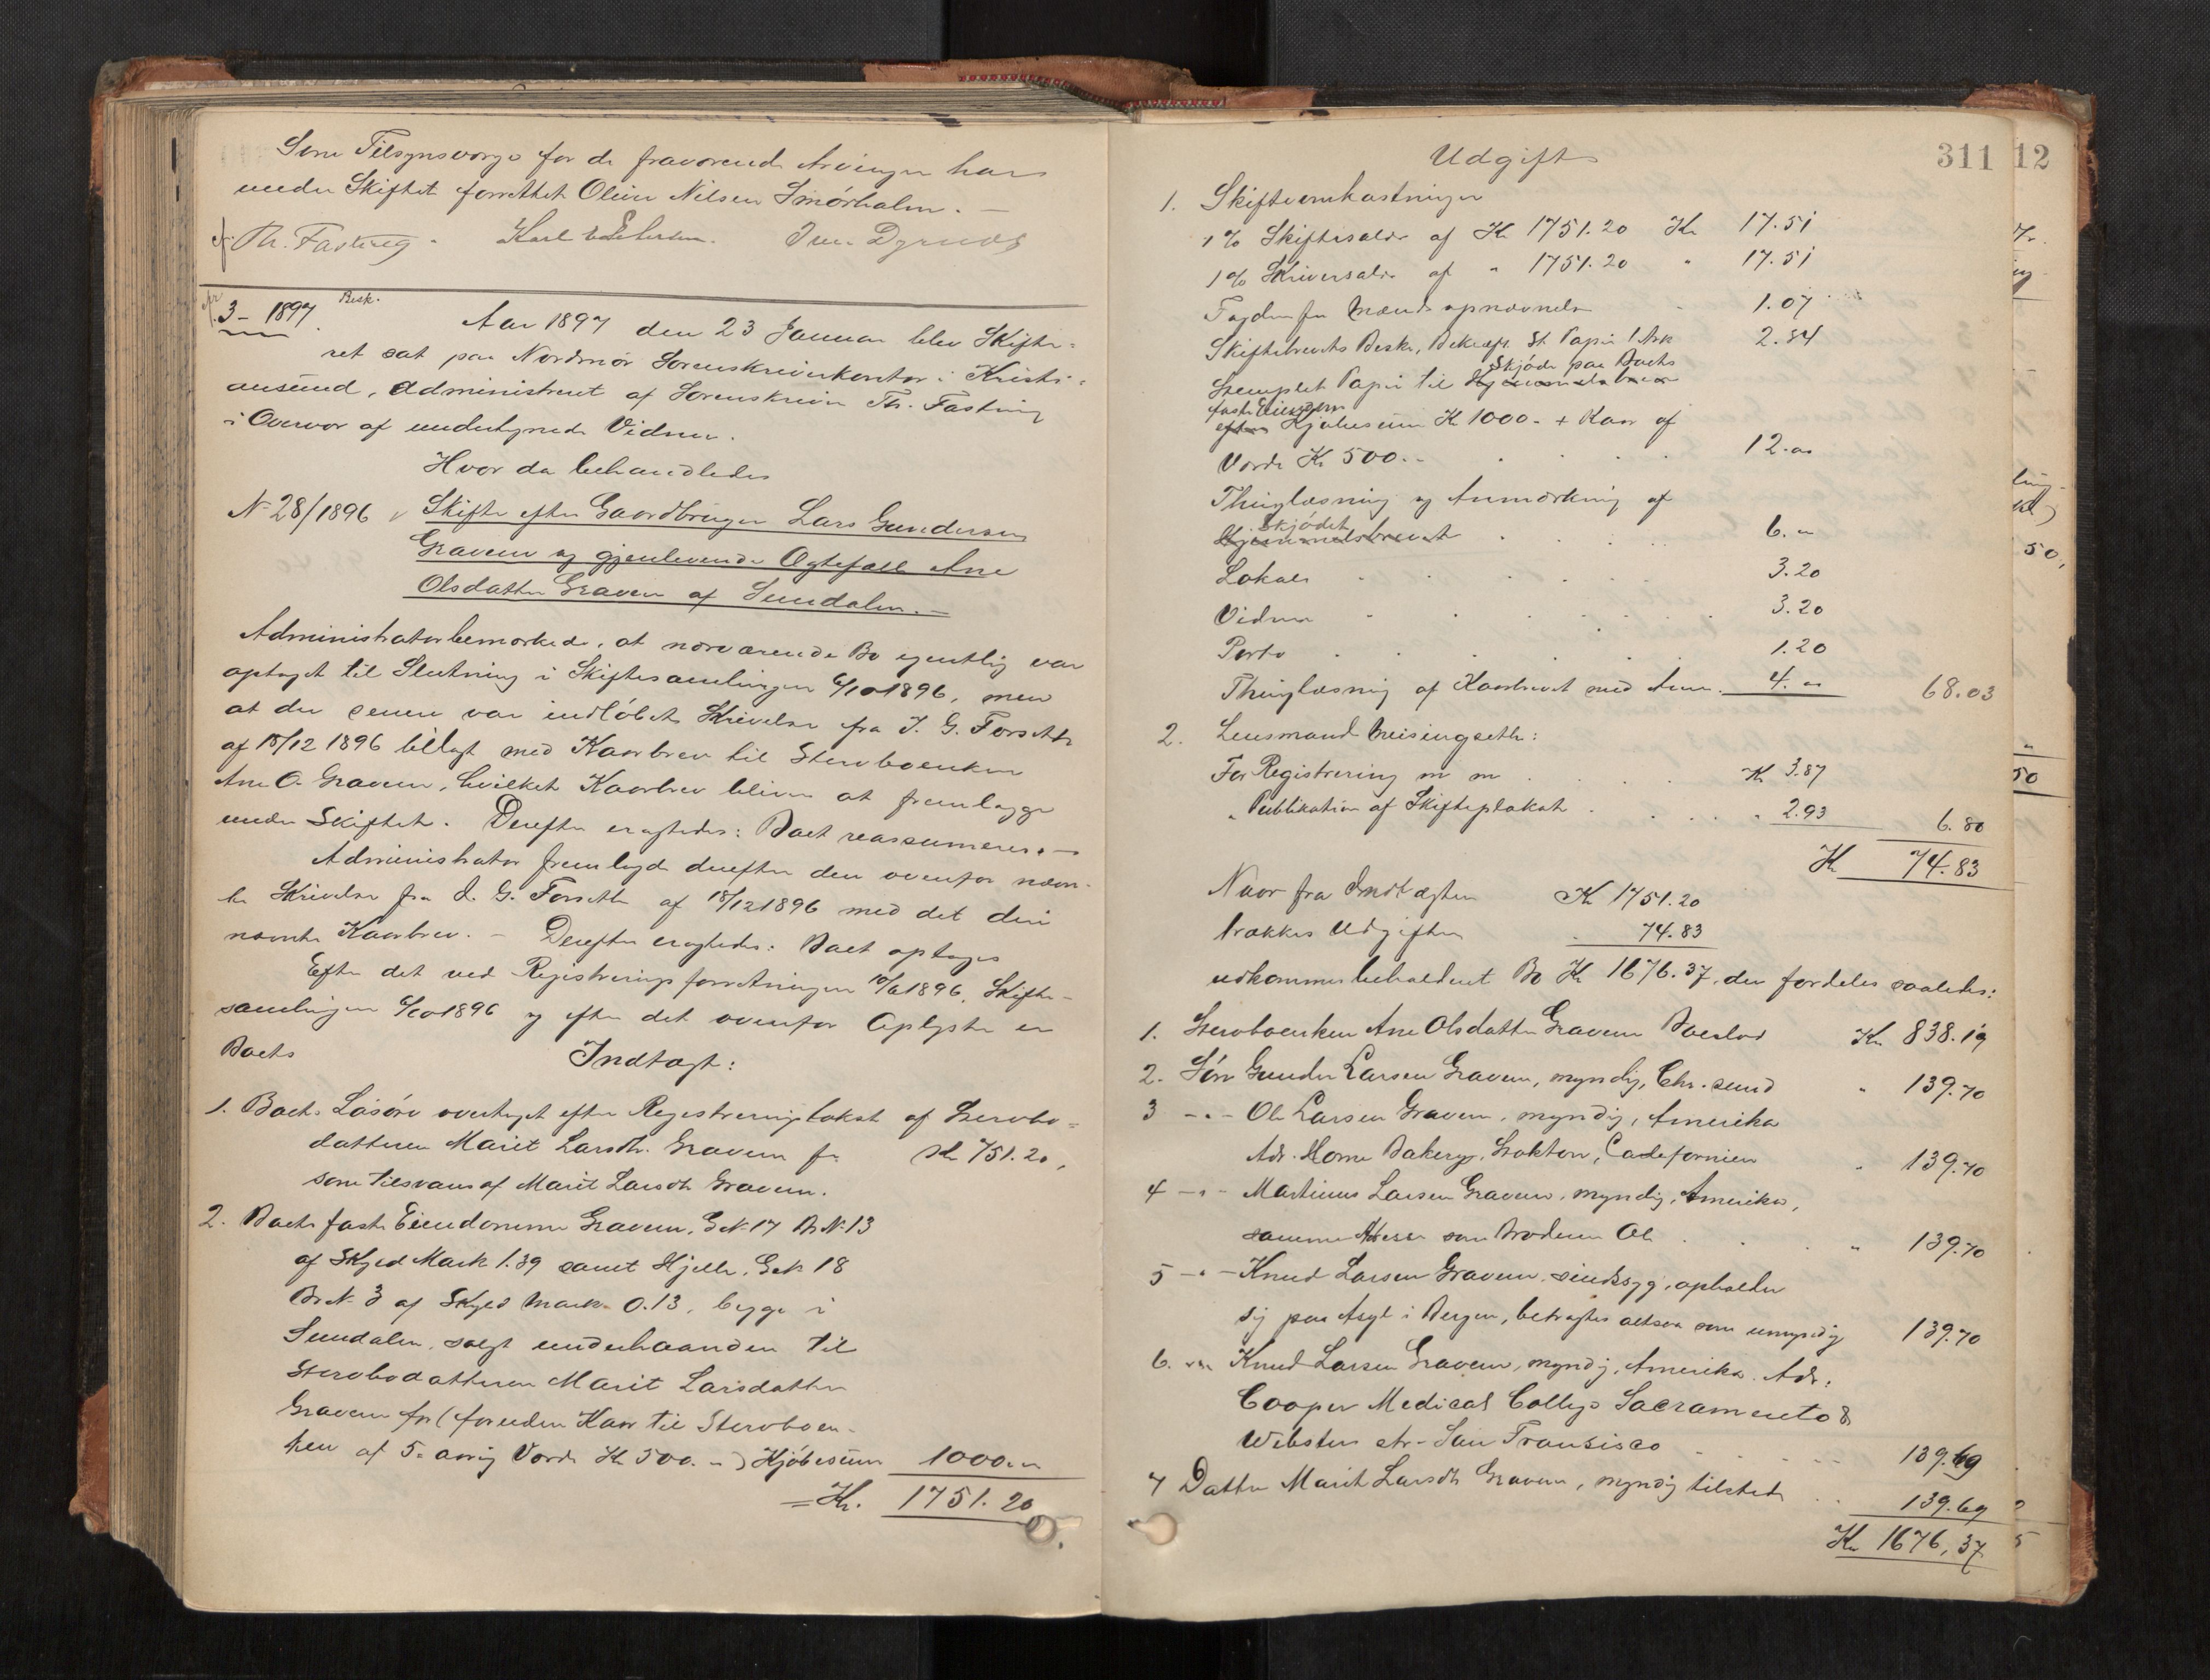 Som Tilsynsværge for de fraværende Arvinger har
under Skiftet forrettet Oliver Nilsen Smörholm. –
Th. Fasting. Karl Iver Dyrnes
3 – 1897 Besk.
Aar 1897 den 23 Januar blev Skifte-
ret sat paa Nordmør Sorenskriverkontor i Kristi-
ansund, administreret af Sorenskriver Th. Fasting
i Overvær af undertegnede Vidner.
Hvor da behandledes
N 28/1896 Skifte efter Gaardbruger Lars Gundersen
Gravem og gjenlevende Ægtefælle Ane
Olsdatter Gravem af Sundalen. –
Administrator bemærkede, at nærværende Bo egentlig var
optaget til Slutning i Skiftesamlingen 6/10 1896, men
at der senere var indløbet Skrivelse fra J. G. Forseth
af 18/12 1896 bilagt med Kaarbrev til Stervboenken
Ane O. Gravem, hvilket Kaarbrev bliver at fremlægge
under Skiftet. Derefter eragtedes: Boet reassumeres. –
Administrator fremlagde derefter den ovenfor nævn-
te Skrivelse fra J. G. Forseth af 18/12 1896 med det deri
nævnte Kaarbrev. – Derefter eragtedes: Boet optages
Efter det ved Registreringsforretningen 10/6 1896, Skifte-
samlingen 6/10 1896 og efter det ovenfor Oplyste er
Boets Indtægt:
1. Boets Løsøre overtaget efter Registreringstakst af Stervbo-
datteren Marit Larsdtr. Gravem for Kr 751.20,
som tilsvares af Marit Larsdtr Gravem.
2. Boets faste Eiendomme Gravem, G N. 17 Br N. 13
af Skyld Mark 1.39 samt Hjelle, G N. 18
Br N. 3 af Skyld Mark 0.13, begge i
Sundalen, solgt underhaanden til
Stervbodatteren Marit Larsdatter
Gravem for (foruden Kaar til Stervboen-
ken af 5-aarig Værdi Kr 500. –) Kjøbesum 1000. –
= Kr. 1751. 20
311 12
Udgift
1. Skifteomkostninger
1 % Skiftesalær af Kr 1751.20 Kr 17.51
1 % Skriversalær af " 1751.20 " 17.51
Fogden for Mænds opnævnelse 1.07
Skiftebrevets Besk., Bekræft. St. Papir 1 Ark 2.34
Skjøde paa Boets
Stemplet Papir til Hjemmelsbrev
faste Eiendom
efter Kjøbesum Kr 1000. – + Kaar af
Værdi Kr 500. – 12. –
Thinglæsning og Anmærkning af
Skjødet
Hjemmelsbrevet 6. –
Lokale 3.20
Vidner 3.20
Porto 1.20
Thinglæsning af Kaarbrevet med Anm. 4. – 68.03
2. Lensmand Meisingseth:
For Registrering m m Kr 3.87
" Publikation af Skifteplakat " 2.93 6.80
Kr 74.83
Naar fra Indtægten Kr 1751.20
trækkes Udgiften 74.83
udkommer beholdent Bo Kr 1676.37, der fordeles saaledes:
1. Stervboenken Ane Olsdatter Gravem Boeslod Kr 838.19
2. Søn Gunder Larsen Gravem, myndig, Chr.sund " 139.70
3 – " – Ole Larsen Gravem, myndig, Amerika
Adr. Home Bakery, Stokton, Calefornien " 139.70
4 – " – Martinus Larsen Gravem, myndig, Amerika,
samme Adresse som Broderen Ole " 139.70
5 – " – Knud Larsen Gravem, sindssyg, opholder
sig paa Asyl i Bergen, betragtes altsaa som umyndig 139.70
6. – " – Knud Larsen Gravem, myndig, Amerika. Adr.
Cooper Medical College Sacramento &
Webster str. San Fransisco 139.69
7 Datter Marit Larsdtr Gravem, myndig tilstede 139.69
Kr 1676,37